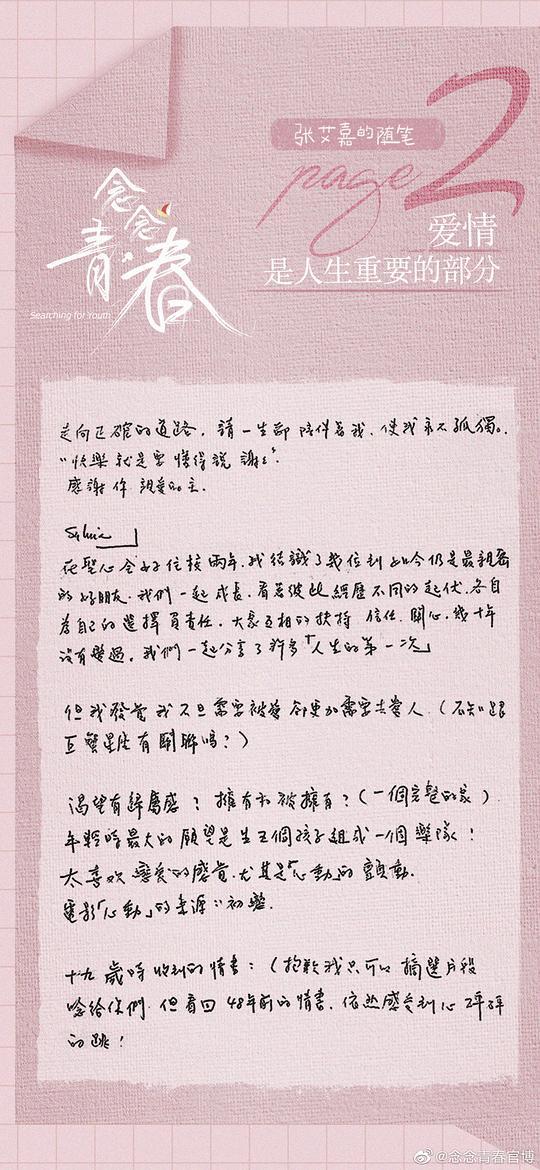 张艾嘉的随笔
page 2
念念
青春
Searching for Youth
爱情
是人生重要的部分
走向正確的道路，請一生都陪伴著我，使我永不孤獨。
"快樂就是要懂得說謝謝"。
感謝你 親愛的主。
Sylvia
在聖心会女子住校兩年，我結識了幾位到如今仍是最親密
的好朋友，我們一起成長，看著彼此經歷不同的起伏，各自
為自己的選擇負責任，大家互相的扶持 信任 關心，幾十年
沒有變過，我們一起分享了許多「人生的第一次」
但我發覺我不但需要被愛卻更加需要去愛人（不知跟
巨蟹星座有關聯嗎？）
渴望有歸屬感？擁有和被擁有？（一個完整的家）
年輕時最大的願望是生五個孩子組成一個樂隊！
太喜歡戀愛的感覺，尤其是「心動」的顫動。
電影「心動」的來源：初戀。
十九歲時收到的情書：（抱歉我只可以摘選片段
唸給你們，但看回48年前的情書，依然感受到心砰砰
的跳！
@念念青春官博